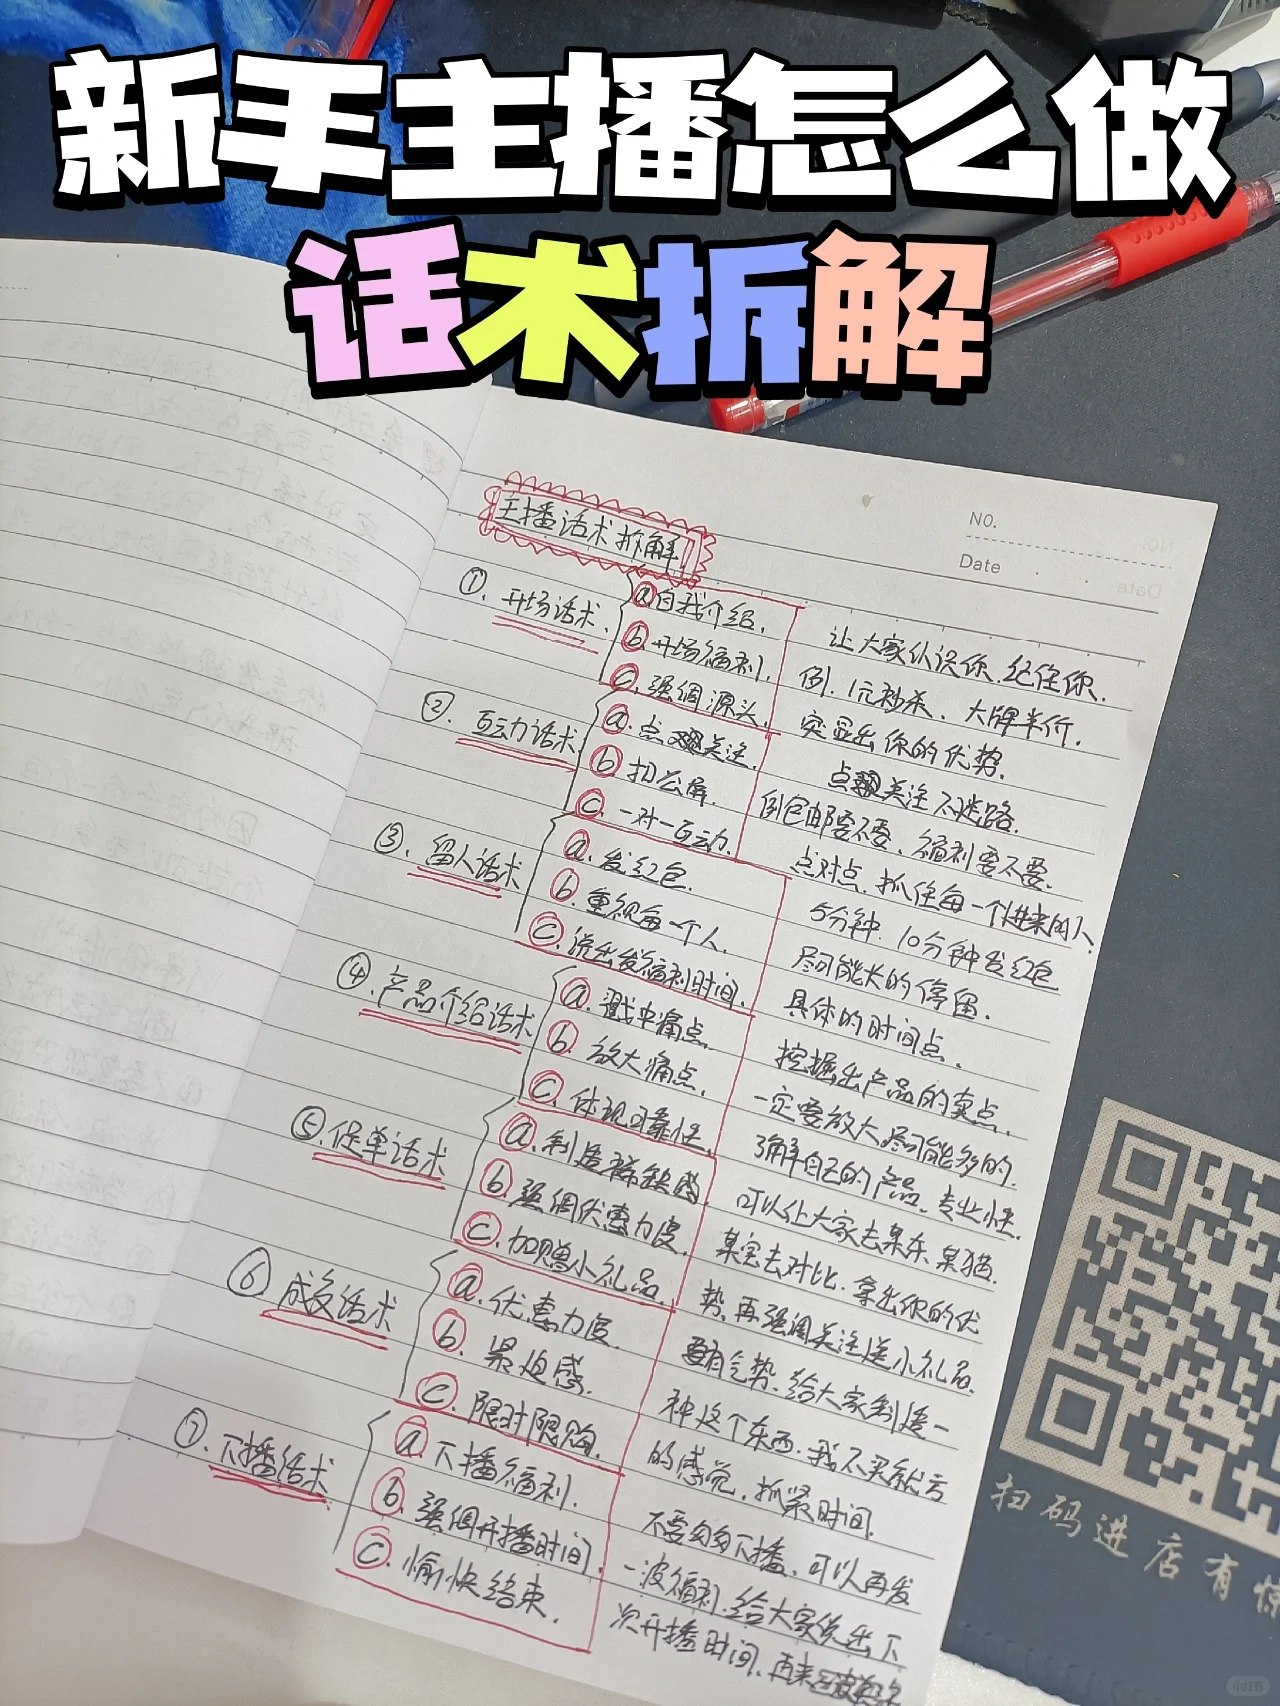 新手主播怎么做
话术拆解
NO.
Date
主播话术拆解
①.开场话术.
ⓐ自我介绍.
ⓑ开场福利.
ⓒ.强调源头.
让大家认识你.纪住你.
例.1元秒杀.大牌半价.
突显出你的优势.
②.互动话术
ⓐ.点关注.
ⓑ扣公屏.
ⓒ.一对一互动.
点关注不迷路.
例包邮要不要.福利要不要.
点对点.抓住每一个进来的人.
③.留人话术
ⓐ.发红包.
ⓑ.重视每一个人.
ⓒ.说出发福利时间.
5分钟.10分钟发红包
尽可能长的停留.
具体的时间点.
④.产品介绍话术
ⓐ.戳中痛点.
ⓑ.放大痛点.
ⓒ.体现可靠性.
挖掘出产品的卖点.
一定要放大.尽可能多的.
了解自己的产品.专业性.
⑤.促单话术
ⓐ.制造稀缺感.
ⓑ.强调优惠力度.
ⓒ.加赠小礼品.
可以让大家去某东.某猫.
某宝去对比.拿出你的优
势.再强调关注送小礼品.
⑥成交话术
ⓐ.优惠力度.
ⓑ.紧迫感.
ⓒ.限时限购.
要有气势.给大家制造一
种这个东西.我不买就亏
的感觉.抓紧时间.
⑦.下播话术
ⓐ下播福利.
ⓑ.强调开播时间.
ⓒ.愉快结束.
不要匆匆下播.可以再发
一波福利.给大家说出下
次开播时间.再来
扫码进店有惊
小红书